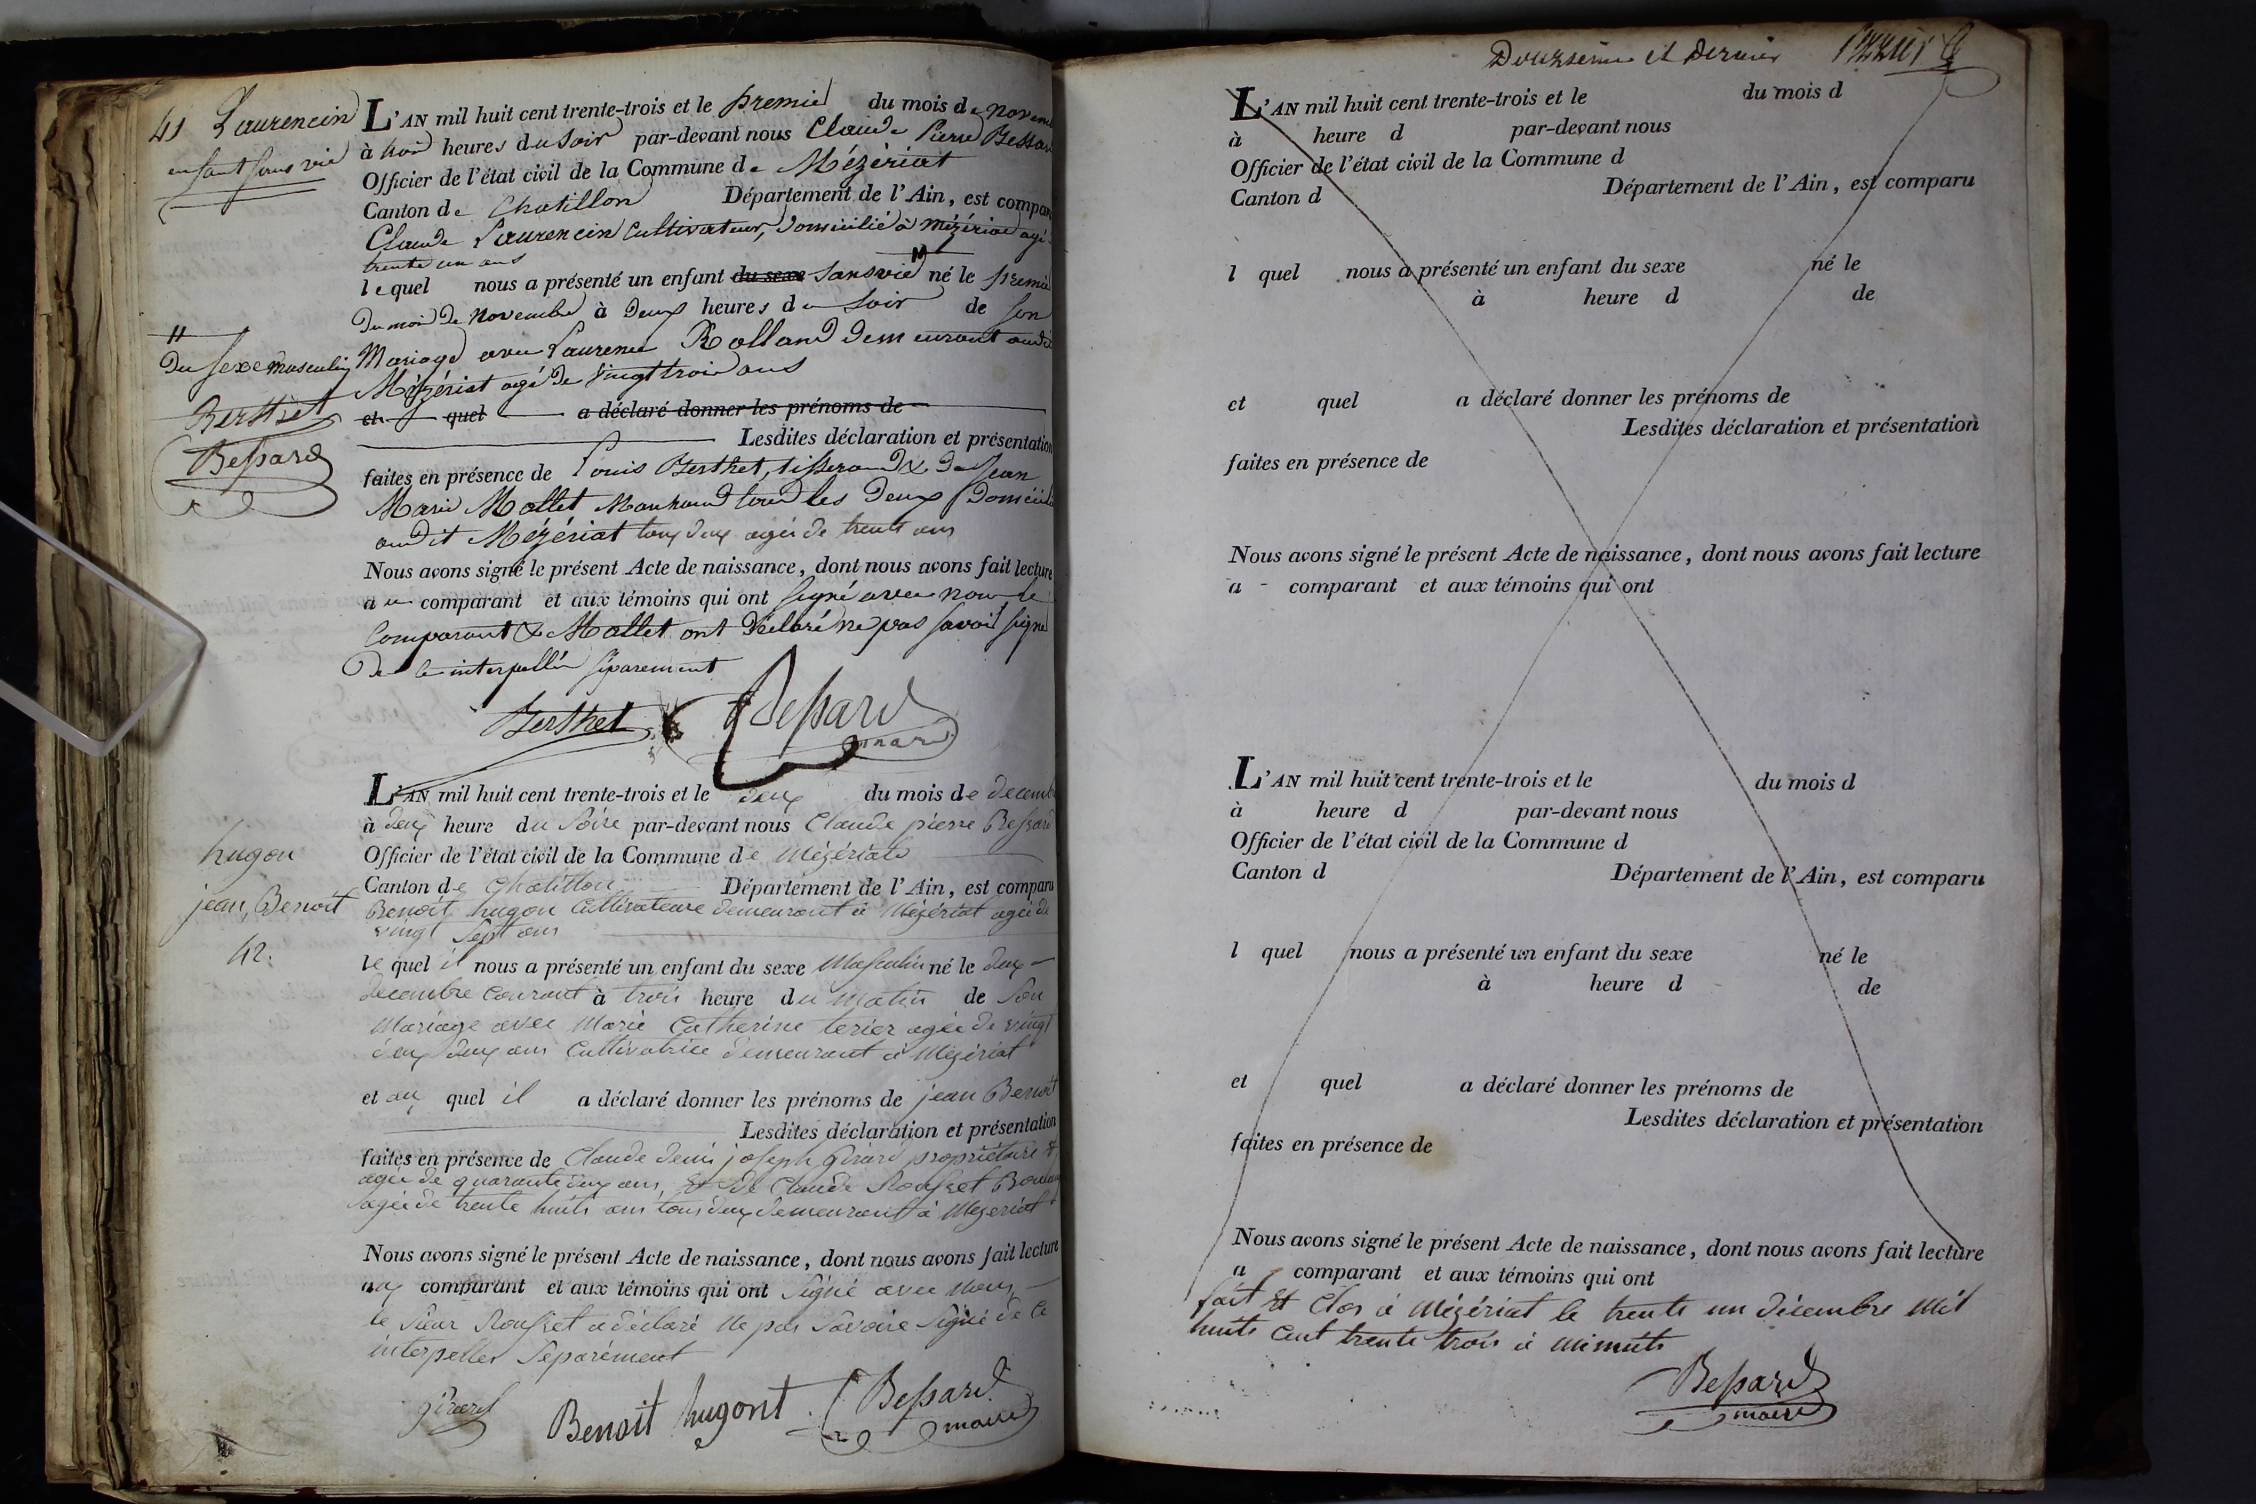 41 Laurencin
enfant sans vie
L'AN mil huit cent trente-trois et le premier du mois de novem
à trois heures du soir par-devant nous Claude Pierre Bessar
Officier de l'état civil de la Commune de Mézériat
Canton de Chatillon Département de l'Ain, est compar
Claude Laurencin Cultivateur, domicilié à mézériat agé
trente un ans
le quel nous a présenté un enfant du sexe sans vie " né le premie
du mois de Novembre à deux heures du soir de son
Mariage avec Laurence Rolland demeurant audit
Mézériat agé de vingt trois ans
"
du sexe masculin
Berthet
Bessard
et quel a déclaré donner les prénoms de
Lesdites déclaration et présentation
faites en présence de Louis Berthet, tisserand & de Jean
Marie Mallet Marchand tous les deux domicilié
audit Mézériat tous deux agés de trente ans
Nous avons signé le présent Acte de naissance, dont nous avons fait lecture
au comparant et aux témoins qui ont signé avec nous le
Comparant & Mallet ont déclaré ne pas savoir signé
de ce interpellés séparement
Berthet Bessard
maire
L'AN mil huit cent trente-trois et le deux du mois de decemb
à deux heure du Soire par-devant nous Claude pierre Bessard
Officier de l'état civil de la Commune de Mézériat
Canton de Chatillon Département de l'Ain, est comparu
Benoit hugon Cultivateure demeurant à Mézériat agée de
vingt sept ans
hugon
jean, Benoit
42.
le quel il nous a présenté un enfant du sexe Masculin né le deux
decembre courant à trois heure du matin de Son
Mariage avec Marie Catherine terier agée de vingt
deux deux ans Cultivatrice demeurant à Mézériat
et au quel il a déclaré donner les prénoms de jean Benoit
Lesdites déclaration et présentation
faites en présence de Claude denis joseph Girard propriétaire &
agée de quarante deux ans, & de Claude Rousset
agée de trente huits ans tous deux demeurant à Mezeriat
Nous avons signé le présent Acte de naissance, dont nous avons fait lecture
aux comparant et aux témoins qui ont Signé avec Nous
le Sieur Rousset a déclaré Ne pas Savoire Signé de Ce
interpeller Séparément
girard Benoit hugont Bessard
maire
Douzsieme et Dernier
L'AN mil huit cent trente-trois et le du mois d
à heure d par-devant nous
Officier de l'état civil de la Commune d
Canton d Département de l'Ain, est comparu
l quel nous a présenté un enfant du sexe né le
à heure d de
et quel a déclaré donner les prénoms de
Lesdites déclaration et présentation
faites en présence de
Nous avons signé le présent Acte de naissance, dont nous avons fait lecture
a comparant et aux témoins qui ont
L'AN mil huit cent trente-trois et le du mois d
à heure d par-devant nous
Officier de l'état civil de la Commune d
Canton d Département de l'Ain, est comparu
l quel nous a présenté un enfant du sexe né le
à heure d de
et quel a déclaré donner les prénoms de
Lesdites déclaration et présentation
faites en présence de
Nous avons signé le présent Acte de naissance, dont nous avons fait lecture
a comparant et aux témoins qui ont
fait Et Clos à Mézériat le trente un décembre Mil
huits Cent trente trois à minuits
Bessard
maire